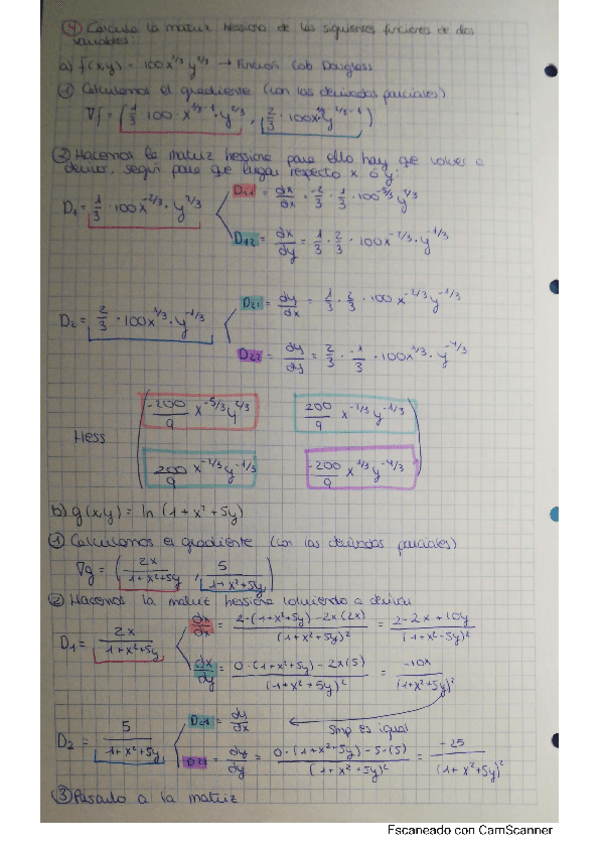 ④ Calcula la matriz hessiana de las siguientes funciones de dos
variables:
a) f(x,y) = 100x^1/3 y^2/3 → Función Cob Douglass
① Calculamos el gradiente (con las derivadas parciales)
∇f = (1/3 · 100 · x^1/3-1 · y^2/3 , 2/3 · 100x^1/3 · y^2/3-1)
② Hacemos la matriz hessiana para ello hay que volver a
derivar, según para que lugar respecto x ó y:
D1 = 1/3 · 100x^-2/3 · y^2/3
D11 = dx/dx = -2/3 · 1/3 · 100^-5/3 y^2/3
D12 = dx/dy = 1/3 · 2/3 · 100x^-2/3 · y^-1/3
D2 = 2/3 · 100x^1/3 · y^-1/3
D21 = dy/dx = 1/3 · 2/3 · 100 x^-2/3 y^-1/3
D22 = dy/dy = 2/3 · -1/3 · 100x^1/3 · y^-4/3
Hess
-200/9 x^-5/3 y^2/3 200/9 x^-2/3 y^-1/3
200/9 x^-2/3 y^-1/3 -200/9 x^1/3 y^-4/3
b) g(x,y) = ln (1+x²+5y)
① Calculamos el gradiente (con las derivadas parciales)
∇g = (2x/1+x²+5y , 5/1+x²+5y)
② Hacemos la matriz hessiana volviendo a derivar
D1 = 2x/1+x²+5y
dx/dx = 2·(1+x²+5y)-2x(2x)/(1+x²+5y)² = 2-2x+10y/(1+x²-5y)²
dx/dy = 0·(1+x²+5y)-2x(5)/(1+x²+5y)² = -10x/(1+x²+5y)²
D2 = 5/1+x²+5y
D21 = dy/dx Smp es igual
dy/dy = 0·(1+x²+5y)-5·(5)/(1+x²+5y)² = -25/(1+x²+5y)²
③ Pasarlo a la matriz
Escaneado con CamScanner